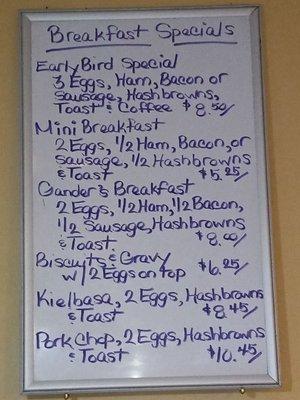 Breakfast Specials
Early Bird Special
3 Eggs, Ham, Bacon or
Sausage, Hashbrowns,
Toast & Coffee $8.50/
Mini Breakfast
2 Eggs, 1/2 Ham, Bacon, or
Sausage, 1/2 Hashbrowns
& Toast $5.25/
Gander's Breakfast
2 Eggs, 1/2 Ham, 1/2 Bacon,
1/2 Sausage, Hashbrowns
& Toast $8.00/
Biscuits & Gravy
w/ 2 Eggs on top $6.25/
Kielbasa, 2 Eggs, Hashbrowns
& Toast $8.45/
Pork Chop, 2 Eggs, Hashbrowns
& Toast $10.45/